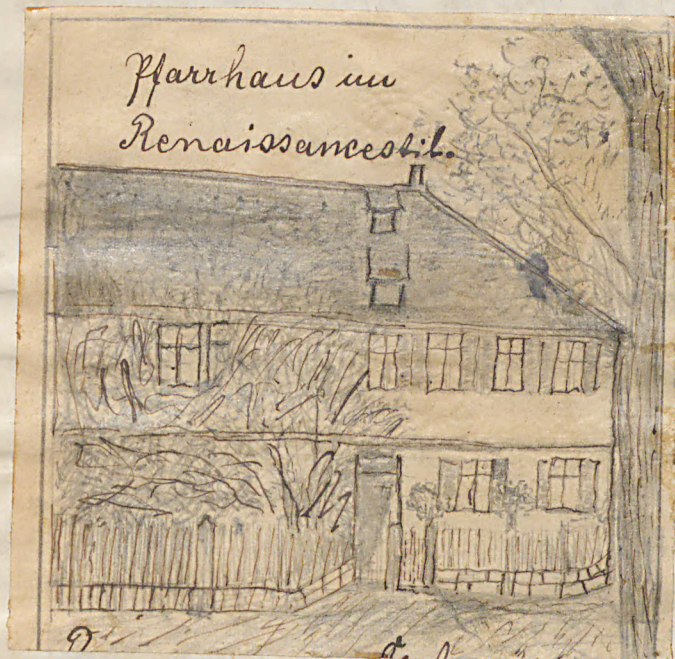 Pfarrhaus im
Renaissancestil.